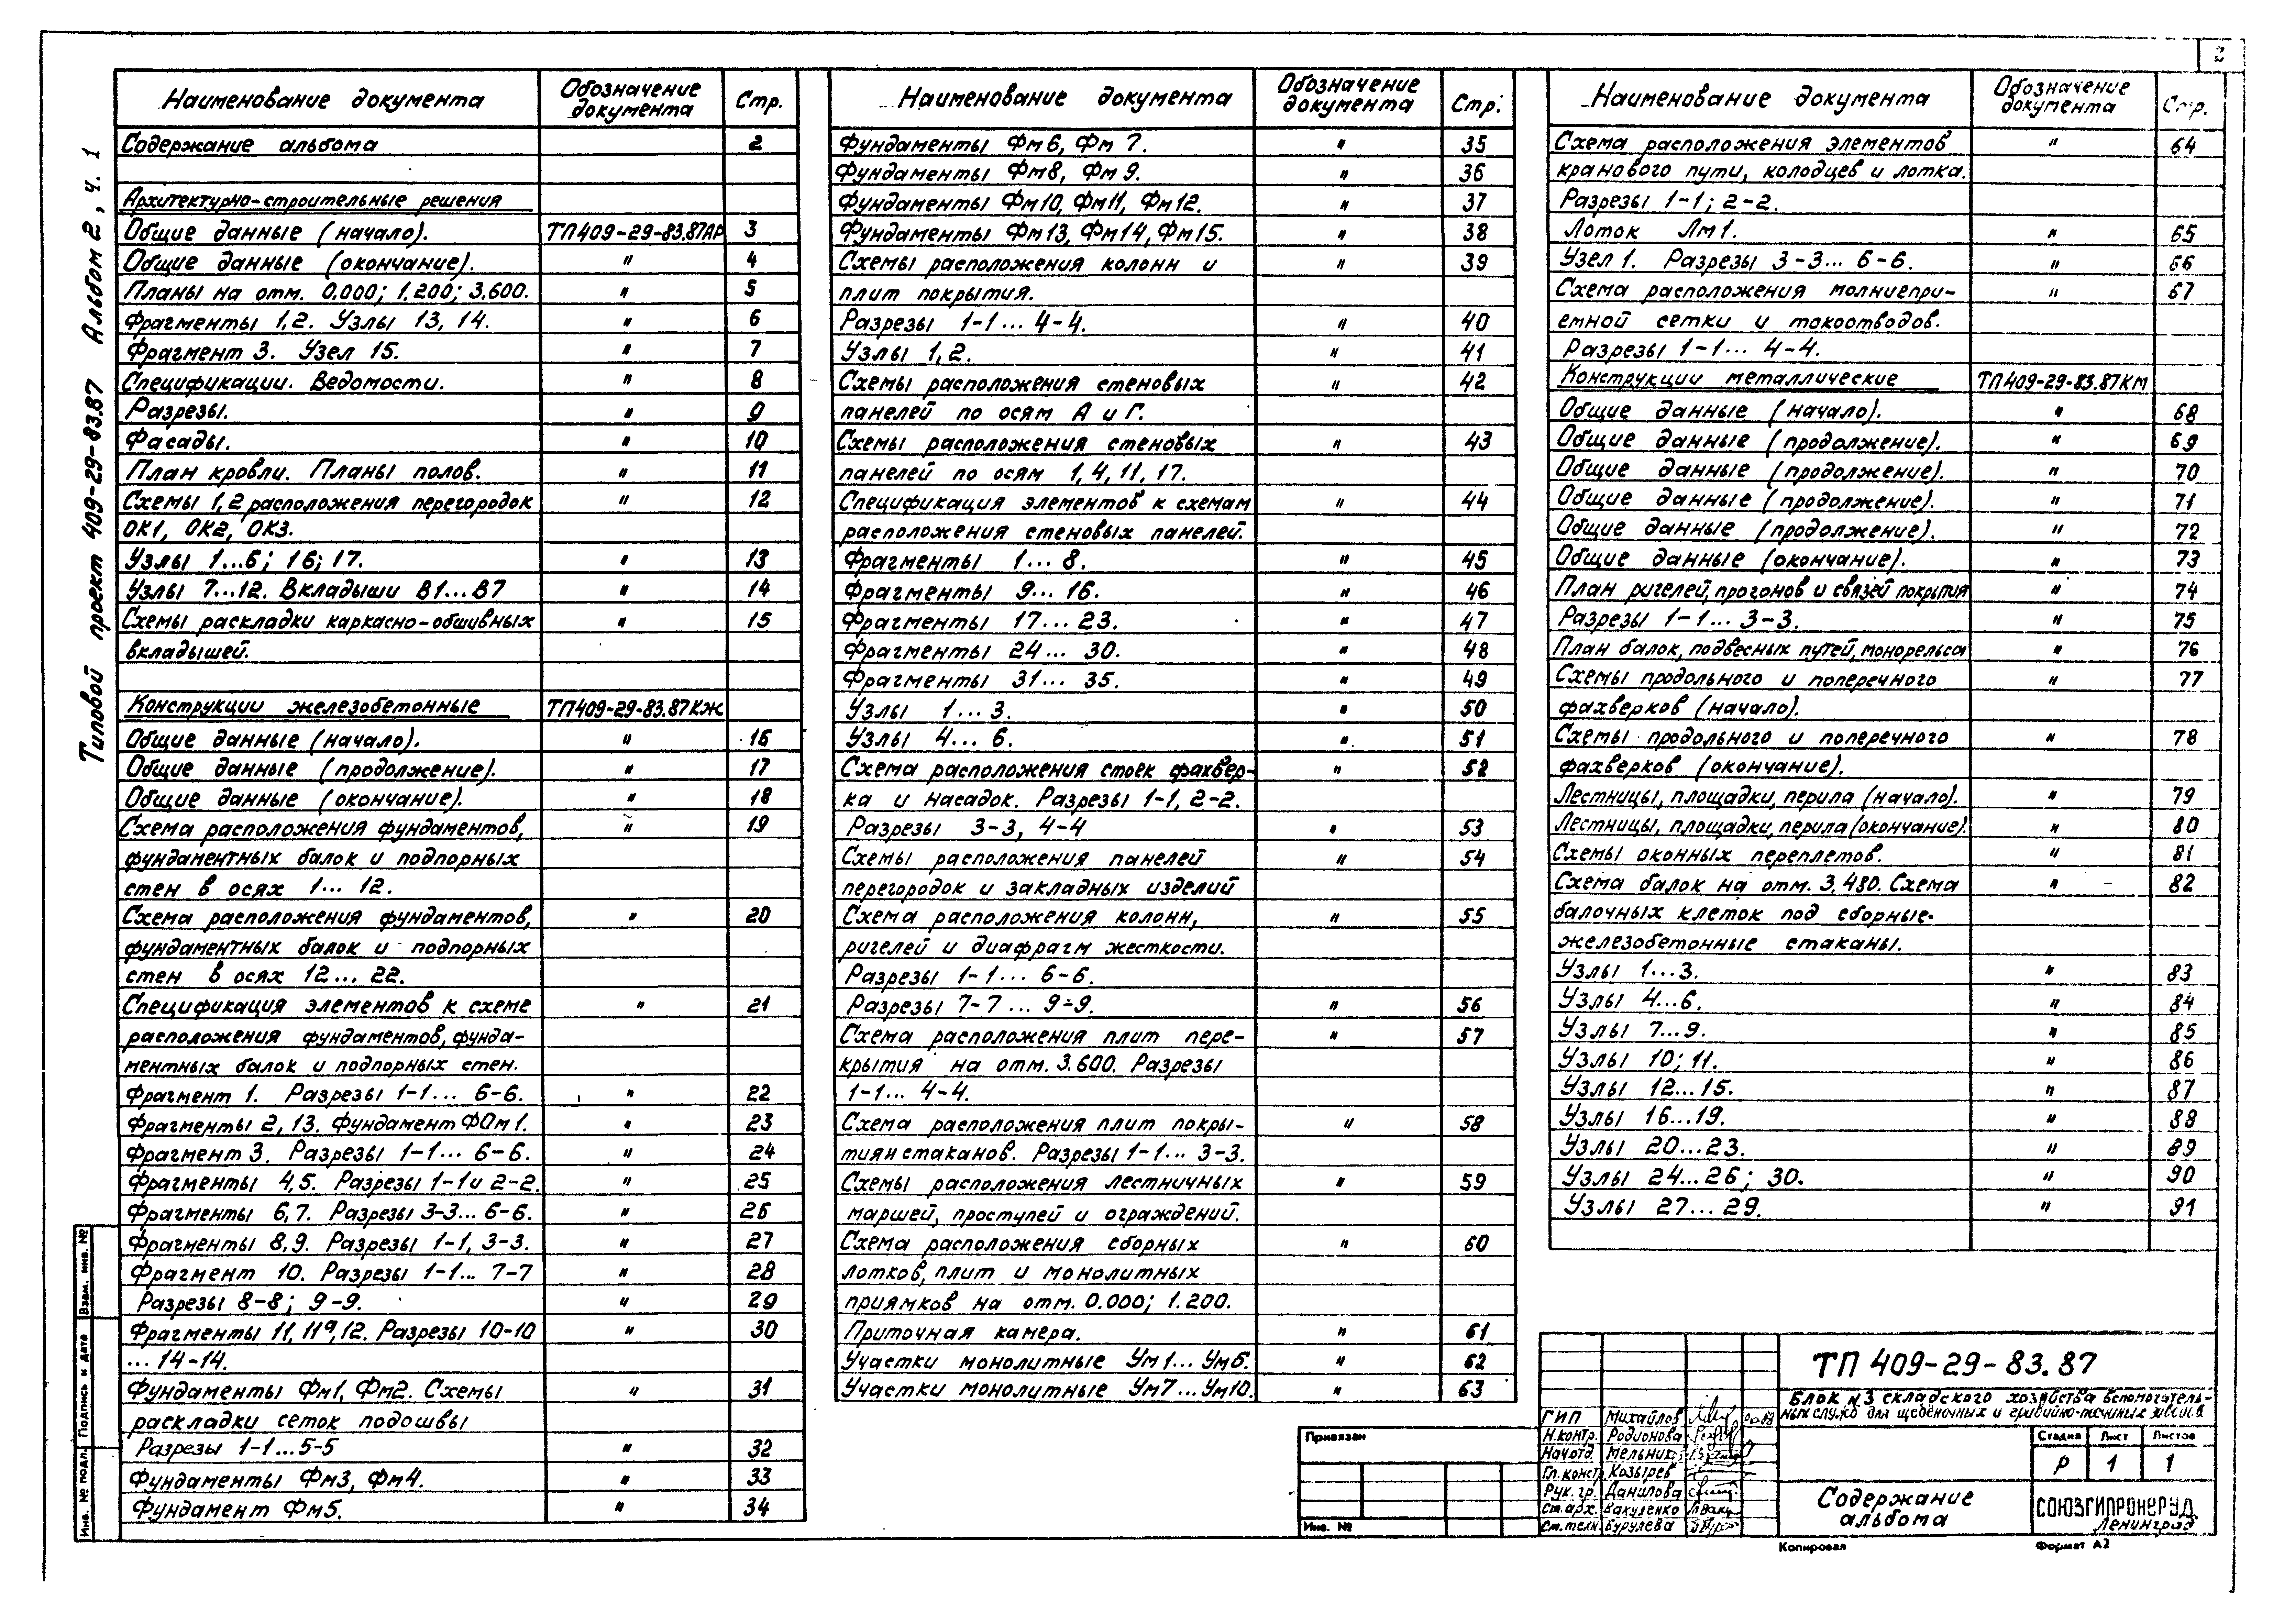 2
Типовой проект 409-29-83.87 Альбом 2, ч. 1
Наименование документа Обозначение документа Стр.
Содержание альбома 2
Архитектурно-строительные решения
Общие данные (начало). ТП409-29-83.87АР 3
Общие данные (окончание). " 4
Планы на отм. 0.000; 1.200; 3.600. " 5
Фрагменты 1,2. Узлы 13, 14. " 6
Фрагмент 3. Узел 15. " 7
Спецификации. Ведомости. " 8
Разрезы. " 9
Фасады. " 10
План кровли. Планы полов. " 11
Схемы 1,2 расположения перегородок " 12
ОК1, ОК2, ОК3.
Узлы 1...6; 16; 17. " 13
Узлы 7...12. Вкладыши В1...В7 " 14
Схемы раскладки каркасно-обшивных " 15
вкладышей.
Конструкции железобетонные ТП409-29-83.87КЖ
Общие данные (начало). " 16
Общие данные (продолжение). " 17
Общие данные (окончание). " 18
Схема расположения фундаментов, " 19
фундаментных балок и подпорных
стен в осях 1... 12.
Схема расположения фундаментов, " 20
фундаментных балок и подпорных
стен в осях 12... 22.
Спецификация элементов к схеме " 21
расположения фундаментов, фунда-
ментных балок и подпорных стен.
Фрагмент 1. Разрезы 1-1... 6-6. " 22
Фрагменты 2, 13. Фундамент ФОм1. " 23
Фрагмент 3. Разрезы 1-1... 6-6. " 24
Фрагменты 4,5. Разрезы 1-1 и 2-2. " 25
Фрагменты 6,7. Разрезы 3-3... 6-6. " 26
Фрагменты 8,9. Разрезы 1-1, 3-3. " 27
Фрагмент 10. Разрезы 1-1... 7-7 " 28
Разрезы 8-8; 9-9. " 29
Фрагменты 11, 11а, 12. Разрезы 10-10 " 30
... 14-14.
Фундаменты Фм1, Фм2. Схемы " 31
раскладки сеток подошвы
Разрезы 1-1...5-5 " 32
Фундаменты Фм3, Фм4. " 33
Фундамент Фм5. " 34
Наименование документа Обозначение документа Стр.
Фундаменты Фм6, Фм 7. " 35
Фундаменты Фм8, Фм 9. " 36
Фундаменты Фм10, Фм11, Фм12. " 37
Фундаменты Фм13, Фм14, Фм15. " 38
Схемы расположения колонн и " 39
плит покрытия.
Разрезы 1-1... 4-4. " 40
Узлы 1,2. " 41
Схемы расположения стеновых " 42
панелей по осям А и Г.
Схемы расположения стеновых " 43
панелей по осям 1, 4, 11, 17.
Спецификация элементов к схемам " 44
расположения стеновых панелей.
Фрагменты 1... 8. " 45
Фрагменты 9... 16. " 46
Фрагменты 17... 23. " 47
Фрагменты 24... 30. " 48
Фрагменты 31... 35. " 49
Узлы 1... 3. " 50
Узлы 4... 6. " 51
Схема расположения стоек фахвер- " 52
ка и насадок. Разрезы 1-1, 2-2.
Разрезы 3-3, 4-4 " 53
Схемы расположения панелей " 54
перегородок и закладных изделий
Схема расположения колонн, " 55
ригелей и диафрагм жесткости.
Разрезы 1-1... 6-6.
Разрезы 7-7 ... 9-9. " 56
Схема расположения плит пере- " 57
крытия на отм. 3.600. Разрезы
1-1... 4-4.
Схема расположения плит покры- " 58
тия и стаканов. Разрезы 1-1... 3-3.
Схемы расположения лестничных " 59
маршей, проступей и ограждений.
Схема расположения сборных " 60
лотков, плит и монолитных
приямков на отм. 0.000; 1.200.
Приточная камера. " 61
Участки монолитные Ум1... Ум6. " 62
Участки монолитные Ум7... Ум10. " 63
Наименование документа Обозначение документа Стр.
Схема расположения элементов " 64
кранового пути, колодцев и лотка.
Разрезы 1-1; 2-2.
Лоток Лм1. " 65
Узел 1. Разрезы 3-3... 6-6. " 66
Схема расположения молниепри- " 67
емной сетки и токоотводов.
Разрезы 1-1... 4-4.
Конструкции металлические ТП409-29-83.87КМ
Общие данные (начало). " 68
Общие данные (продолжение). " 69
Общие данные (продолжение). " 70
Общие данные (продолжение). " 71
Общие данные (продолжение). " 72
Общие данные (окончание). " 73
План ригелей, прогонов и связей покрытия " 74
Разрезы 1-1... 3-3. " 75
План балок, подвесных путей, монорельса " 76
Схемы продольного и поперечного " 77
фахверков (начало).
Схемы продольного и поперечного " 78
фахверков (окончание).
Лестницы, площадки, перила (начало). " 79
Лестницы, площадки, перила (окончание). " 80
Схемы оконных переплетов. " 81
Схема балок на отм. 3,480. Схема " 82
балочных клеток под сборные
железобетонные стаканы.
Узлы 1...3. " 83
Узлы 4...6. " 84
Узлы 7...9. " 85
Узлы 10; 11. " 86
Узлы 12...15. " 87
Узлы 16...19. " 88
Узлы 20...23. " 89
Узлы 24...26; 30. " 90
Узлы 27...29. " 91
Взам. инв. №
Подпись и дата
Инв. № подл.
Привязан
Инв. №
ГИП Михайлов
Н.контр. Родионова
Нач.отд. Мельник
Гл.констр. Козырев
Рук. гр. Данилова
Ст.арх. Вакуленко
Ст.техн. Бурулева
ТП 409-29-83.87
Блок №3 складского хозяйства вспомогатель-
ных служб для щебеночных и гравийно-песчаных заводов
Стадия Лист Листов
Р 1 1
Содержание альбома
СОЮЗГИПРОНЕРУД
Ленинград
Копировал Формат А2